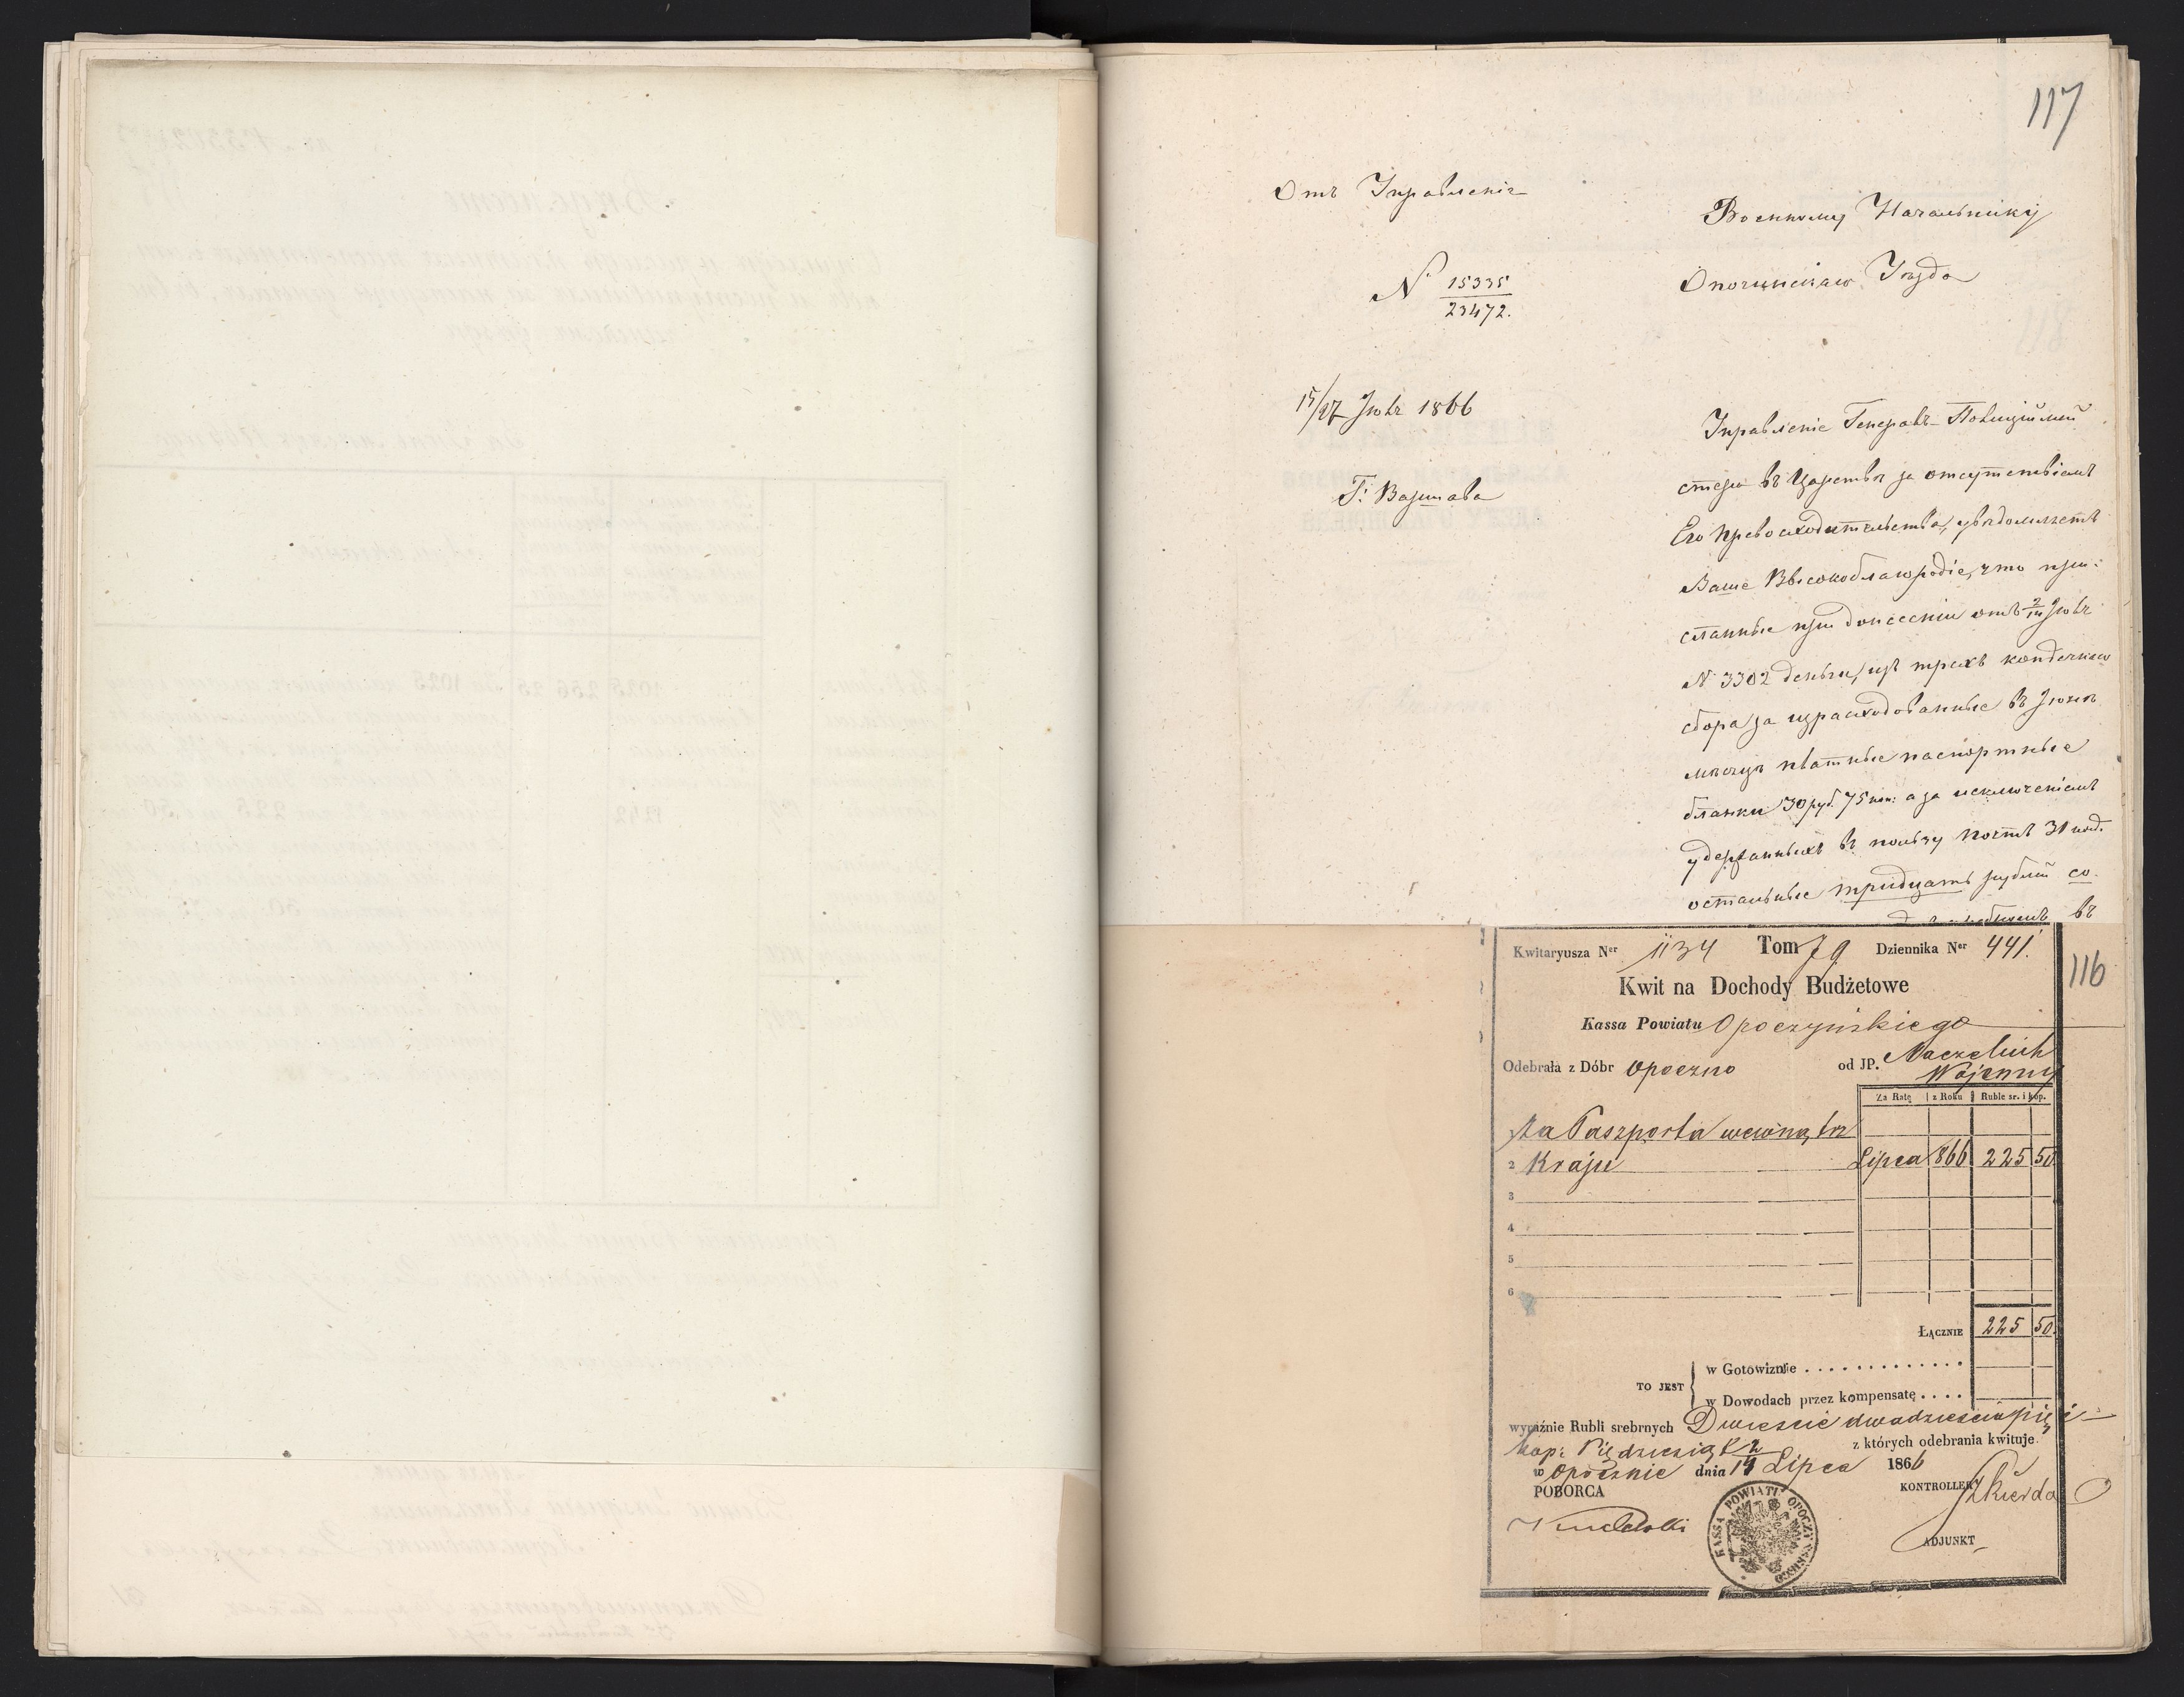 117
Отъ Управленія
Военному Начальнику
Опочинскаго Уѣзда
N 15335
23472.
15/27 Іюля 1866
Г. Варшава
Управленіе Генералъ-Полиціймей
стера въ Царствѣ за отсутствіемъ
Его Превосходительства, увѣдомляетъ
Ваше Высокоблагородіе, что при:
сланные при донесеніи отъ 2/14 Іюля
N 3302 деньги, изъ трехъ копѣечнаго
сбора за израсходованные въ Іюнѣ
мѣсяцѣ платные паспортные
бланки 30 руб. 75 коп: а за исключеніемъ
удержанныхъ въ пользу почтъ
остальные тридцать рублей со
въ
Kwitaryusza Ner 1134 Tom Dziennika Ner 441.
116
Kwit na Dochody Budżetowe
Kassa Powiatu Opoczyńskiego
Odebrała z Dóbr Opoczno od JP. Naczelnik
Wojenny
Za Ratę z Roku Ruble sr. i kop.
Za Paszporta wewnątrz
2 Kraju Lipca 866 225 50
3
4
5
6
ŁĄCZNIE 225 50
TO JEST
w Gotowiznie
w Dowodach przez kompensatę
wyraźnie Rubli srebrnych Dwieście dwadzieścia pięć
kop: Pięćdziesiąt z których odebrania kwituje.
w Opocznie dnia 2/14 Lipca 1866
POBORCA
KONTROLLER
Skierda
ADJUNKT
KASSA POWIATU OPOCZYŃSKIEGO